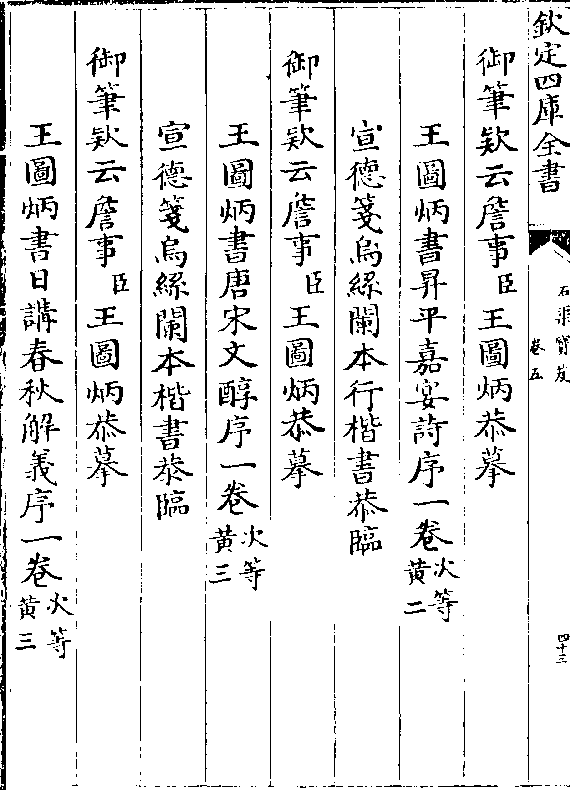 欽定四庫全書
石渠寶笈
卷五
四十三
御筆欵云詹事臣王圖炳恭摹
王圖炳書昇平嘉宴詩序一卷次等黃二
宣德箋烏絲闌本行楷書恭臨
御筆欵云詹事臣王圖炳恭摹
王圖炳書唐宋文醇序一卷次等黃三
宣德箋烏絲闌本楷書恭臨
御筆欵云詹事臣王圖炳恭摹
王圖炳書日講春秋解義序一卷次等黃三